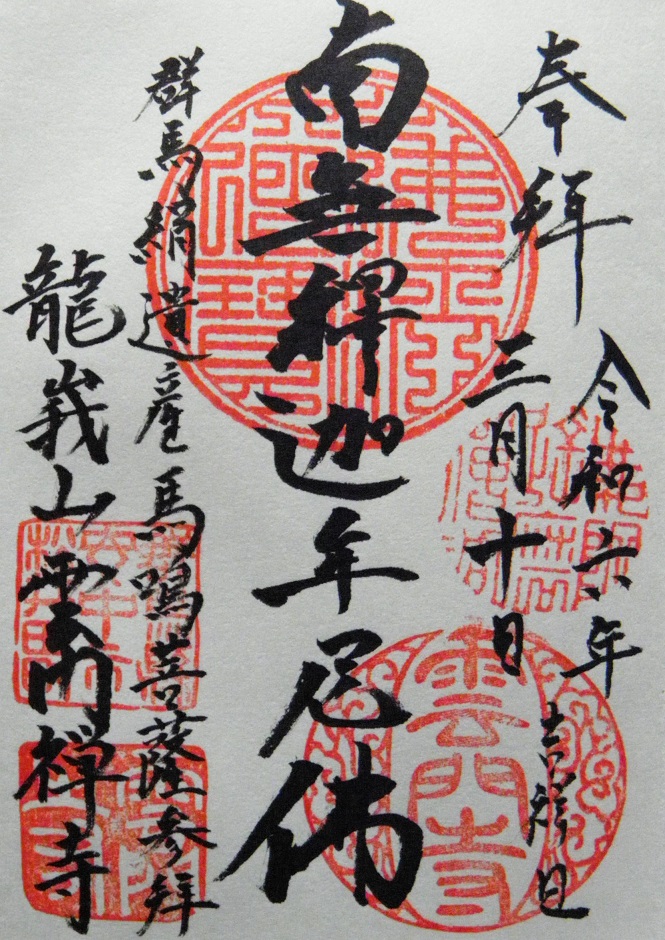 奉拜
令和六年
三月十日
吉祥日
南無釋迦牟尼佛
群馬絹遺産馬鳴菩薩参拜
龍峩山雲門禅寺
雲門寺